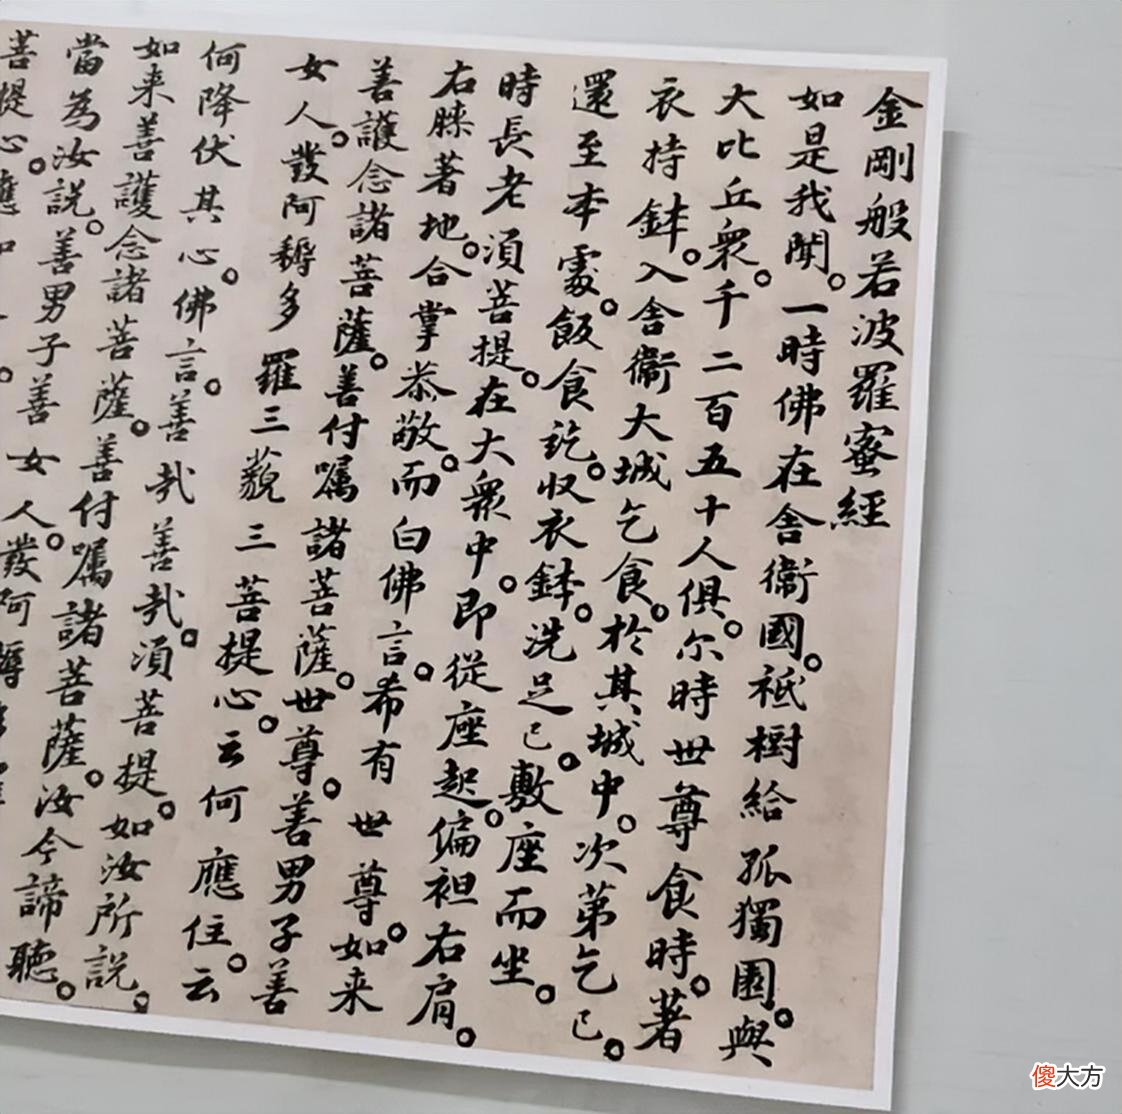 金剛般若波羅蜜經
如是我聞。一時佛在舍衞國。祇樹給孤獨園。與
大比丘衆。千二百五十人俱。尔時世尊食時。著
衣持鉢。入舍衞大城乞食。於其城中。次第乞已。
還至本處。飯食訖。収衣鉢。洗足已。敷座而坐。
時長老須菩提。在大衆中。即從座起。偏袒右肩。
右膝著地。合掌恭敬。而白佛言。希有世尊。如来
善護念諸菩薩。善付嘱諸菩薩。世尊。善男子善
女人。發阿耨多羅三藐三菩提心。云何應住。云
何降伏其心。佛言。善哉善哉。須菩提。如汝所説。
如来善護念諸菩薩。善付嘱諸菩薩。汝今諦聽。
當為汝説。善男子善女人。發阿耨
菩提心。應
傻大方